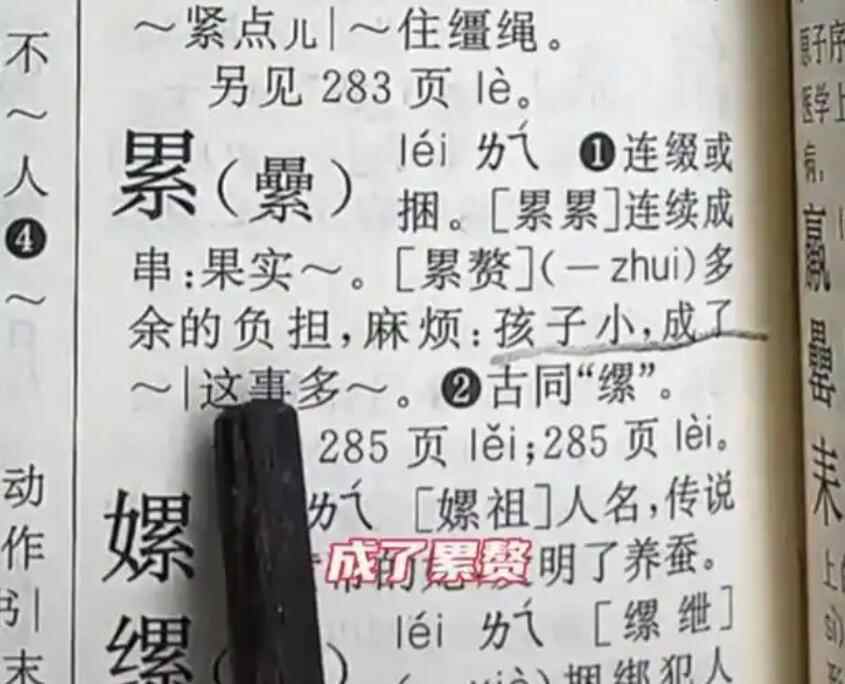 不
～
人
❹
～
动
作
书|
末
～紧点儿|～住缰绳。
另见 283 页 lè。
累(纍) léi ㄌㄟˊ ❶连缀或
捆。[累累]连续成
串:果实～。[累赘](－zhui)多
余的负担,麻烦:孩子小,成了
～|这事多～。❷古同“缧”。
285 页 lěi;285 页 lèi。
嫘 ㄌㄟˊ [嫘祖]人名,传说
明了养蚕。
成了累赘
缧 léi ㄌㄟˊ [缧绁]
捆绑犯人
原子序
医学上
病。
羸
罍
耒
上的
sì)